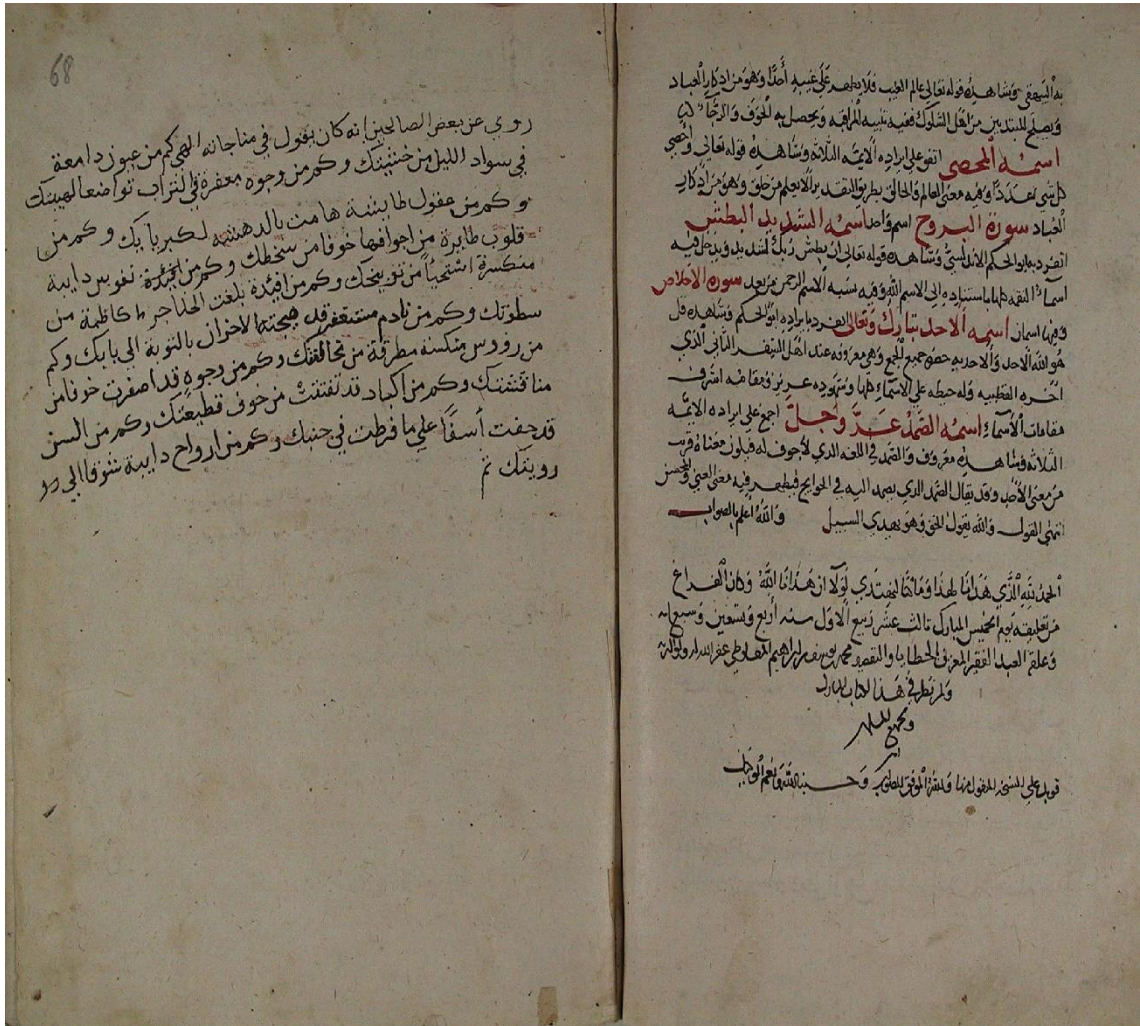 به البيهقي وشاهده قوله تعالى عالم الغيب فلا يظهر على غيبه أحدا وهو من اذكار العباد
ويصلح للمبتدين من اهل السلوك ففيه تنبيه المراقبه ويحصل به الخوف والرجا
اسمه المحصى اتفق على ايراده الايمه الثلاثه وشاهده قوله تعالى واحصى
كل شي عددا وفيه معنى العالم والخالق بطريق التقدير الا يعلم من خلق وهو من اذكار
العباد سورة البروج اسم واحد اسمه الشديد البطش
انفرد به ابو الحكم الاندلسي وشاهده قوله تعالى ان بطش ربك لشديد ويدخل فيه
اسما النقمه كلها باستناده الى الاسم الله وفيه نسبه الاسم الرحمن من بعد سورة الاخلاص
وفيها اسمان اسمه الاحد تبارك وتعالى انفرد بايراده ابو الحكم وشاهده قل
هو الله الاحد والاحديه حضرة جميع الجمع وهي معروفه عند اهل السفر الثاني الذي
آخره القطبيه وله حيطه على الاسماء كلها وشهوده عزيز ومقامه اشرف
مقامات الأسماء اسمه الصمد عز وجل اجمع على ايراده الايمه
الثلاثه وشاهده معروف والصمد في اللغه الذي لاجوف له فيكون معناه قريب
من معنى الأحد وقد يقال الصمد الذي يصمد اليه في الحوايج فيظهر فيه معنى الغني والمحسن
انتهى القول والله يقول الحق وهو يهدي السبيل والله أعلم بالصواب
الحمد لله الذي هدانا لهذا وما كنا لنهتدي لولا ان هدانا الله وكان الفراغ
من تعليقه يوم الخميس المبارك ثالث عشر ربيع الاول سنه أربع وتسعين وسبعمايه
وعلقه العبد الفقير المعترف بالخطايا والتقصير محمد بن يوسف بن ابراهيم غفر الله له ولوالديه
ولمن نظر في هذا الكتاب المبارك
وجميع المسلمين
قوبل على النسخه المنقول منها ولله الموفق للصواب وحسبنا الله ونعم الوكيل
68
روي عن بعض الصالحين انه كان يقول في مناجاته الهي كم من عيون دامعة
في سواد الليل من خشيتك وكم من وجوه معفرة في التراب تواضعا لهيبتك
وكم من عقول طايشة هامت بالدهشة لكبريايك وكم من
قلوب طايرة من اجوافها خوفا من سخطك وكم من نفوس دايبة
منكسرة استحياً من توبيخك وكم من افيدة بلغت الحناجر كاظمة من
سطوتك وكم من نادم مستغفر قد صحبته الاحزان بالتوبة الي بابك وكم
من رووس منكسه مطرقة من مخالفتك وكم من وجوه قد اصفرت خوفا من
مناقشتك وكم من اكباد قد تفتتت من خوف قطيعتك وكم من السن
قد جفت أسفاً علي ما فرطت في جنبك وكم من ارواح دايبة شوقا الي
رويتك تم